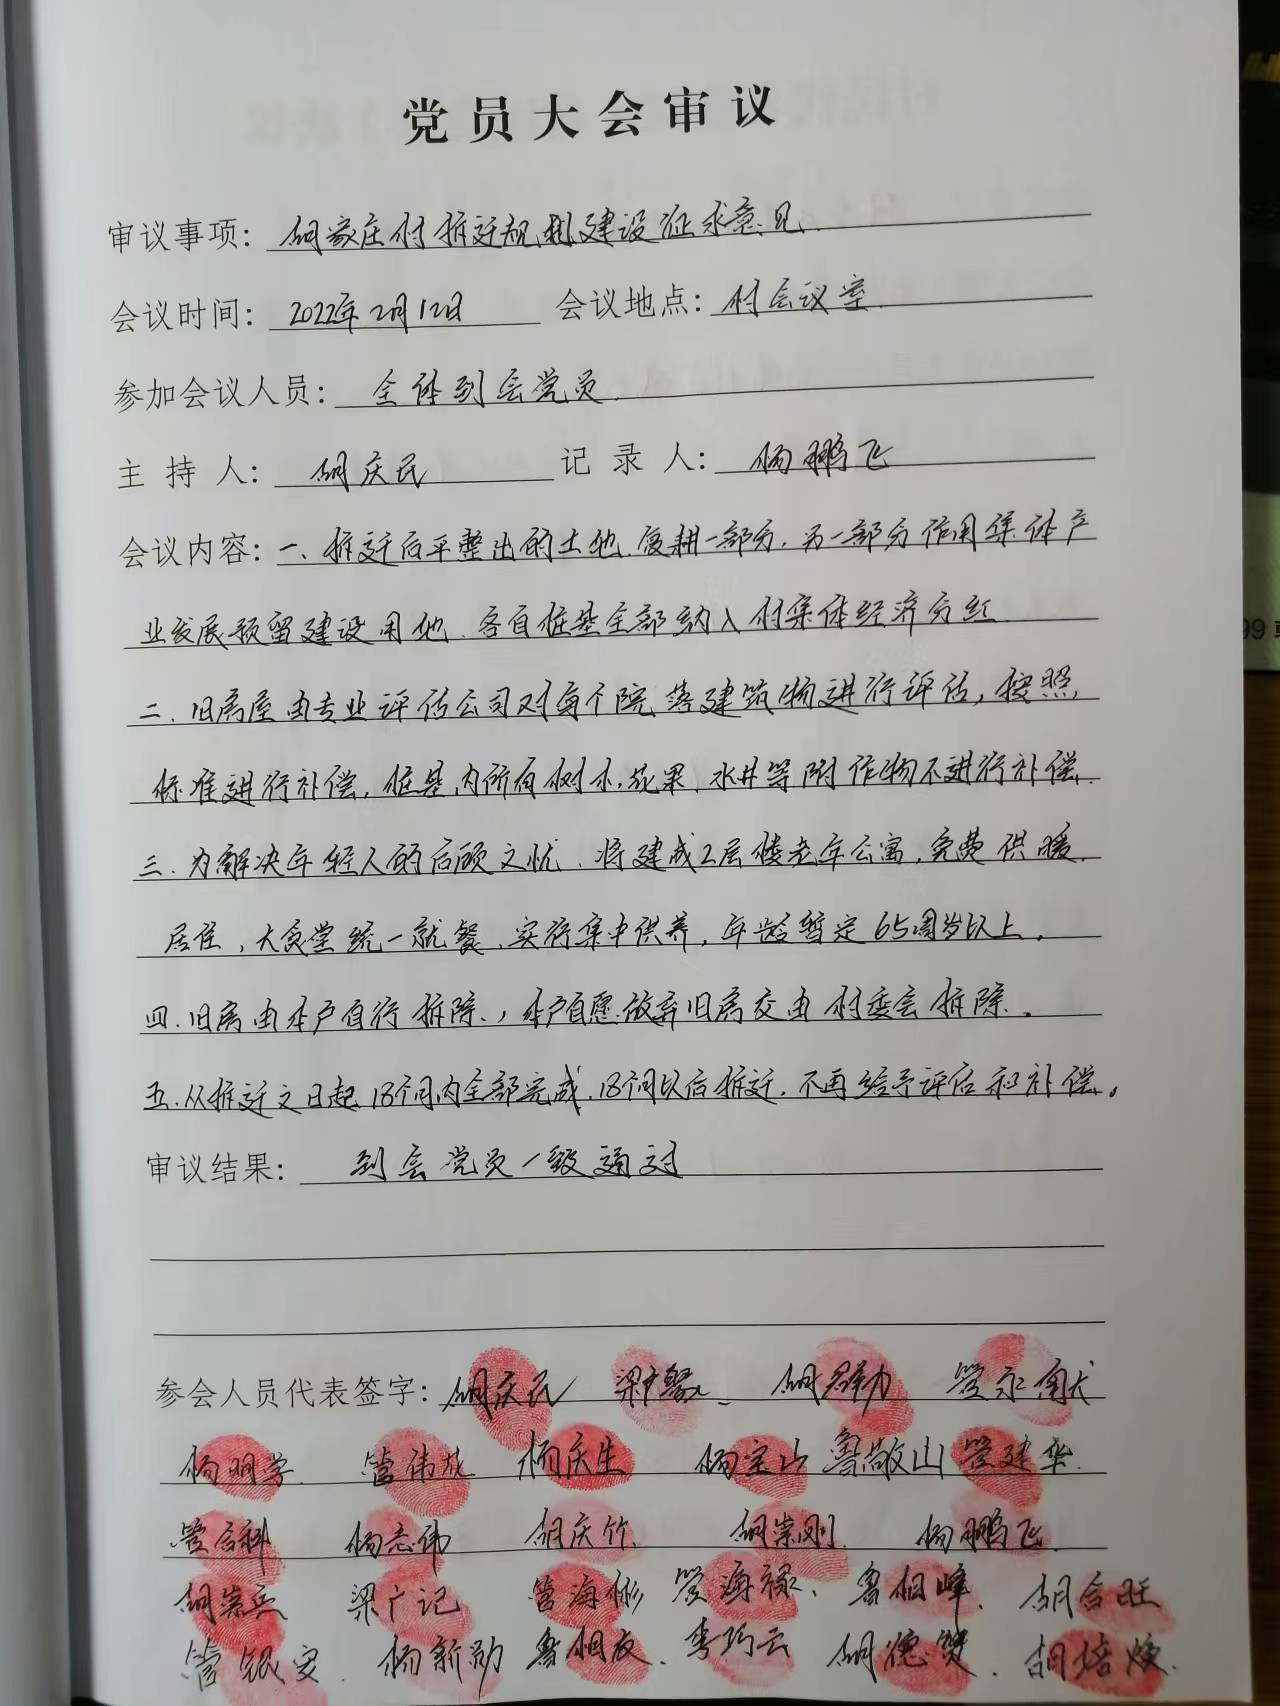 党员大会审议
审议事项：胡家庄村拆迁规划建设征求意见.
会议时间：2022年2月12日 会议地点：村会议室.
参加会议人员：全体到会党员.
主 持 人：胡庆民 记 录 人：杨鹏飞
会议内容：一、拆迁后平整出的土地.复耕一部分.另一部分作用集体产
业发展预留建设用地.各自桩基全部纳入村集体经济分红
二.旧房屋由专业评估公司对每个院落建筑物进行评估，按照
标准进行补偿，桩基内所有树木,花果、水井等附作物不进行补偿.
三.为解决年轻人的后顾之忧.将建成2层楼老年公寓，免费供暖.
居住，大食堂统一就餐、实行集中供养，年龄暂定65周岁以上。
四.旧房由本户自行拆除.，本户自愿放弃旧房交由村委会拆除.。
五.从拆迁之日起18个月内全部完成，18个月以后拆迁.不再给予评估和补偿。
审议结果：到会党员一致通过
参会人员代表签字：胡庆民 胡群力 管永
杨明学. 管伟 杨庆生 杨宝山 鲁敬山 管建华.
管合科 杨志伟 胡庆竹. 胡崇刚. 杨鹏飞.
胡崇兵 梁广记 管海彬 管海禄、 鲁相峰. 胡合旺
管银安. 杨新勋 鲁相友. 李巧云 胡德贤. 胡培焕.